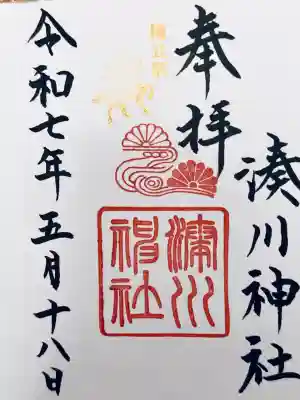 奉拝
湊川神社
湊川神社
令和七年五月十八日